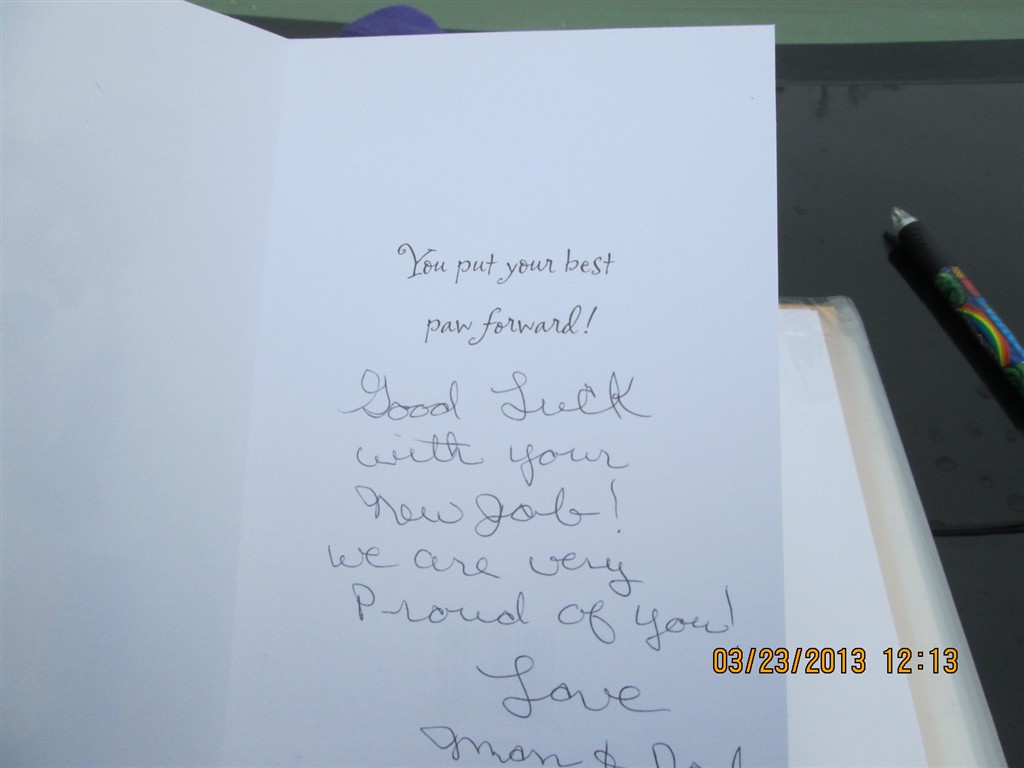 You put your best
paw forward!
Good Luck
with your
New Job!
we are very
Proud of you!
Love
Mom & Dad
03/23/2013 12:13